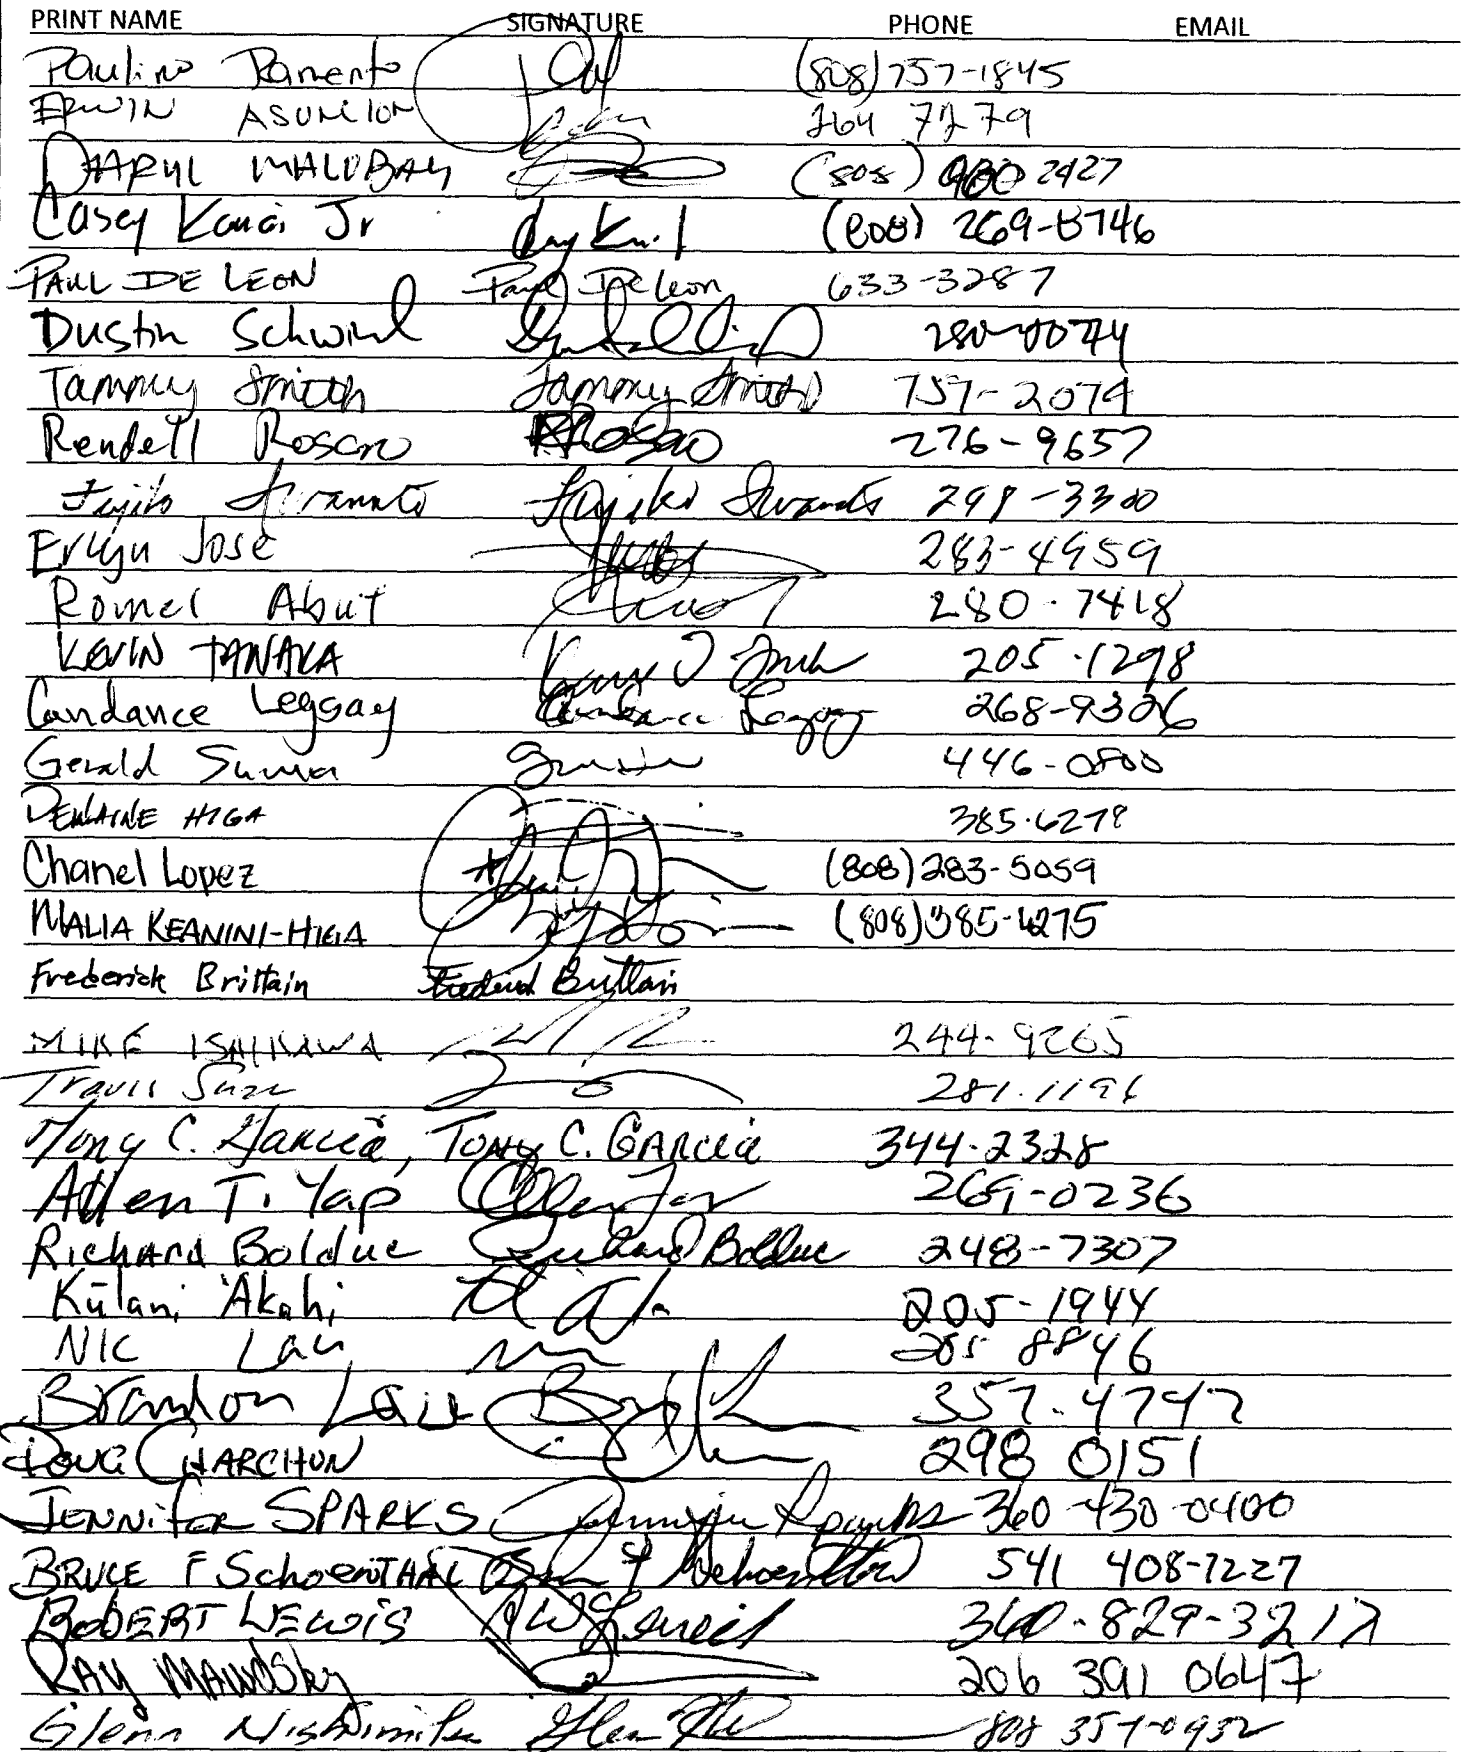 PRINT NAME SIGNATURE PHONE EMAIL
Paulino Ramento (808) 757-1845
ERWIN ASUNCION 264 7279
DARYL MALUBAY (808) 2427
Casey Kauai Jr (808) 269-8746
PAUL DE LEON Paul De Leon 633-3287
Dustin Schwind 280-0074
Tammy Smith Tammy Smith 757-2074
Rendell Rosario RRosario 276-9657
Fujiko Iwamoto Fujiko Iwamoto 298-3300
Erlyn Jose 283-4959
Romel Abut 280-7418
KEVIN TANAKA 205-1298
Candance Leggay Candance Leggay 268-9306
Gerald Suma 446-0800
DEWAINE HIGA 385-6278
Chanel Lopez (808) 283-5059
MALIA KEANINI-HIGA (808) 385-6275
Frederick Brittain Frederick Brittain
MIKE ISHIKAWA 244-9265
Travis 281.1196
Tony C. Garcia, TONY C. GARCIA 344-2328
Allen T. Yap Allen Yap 269-0236
Richard Bolduc Richard Bolduc 248-7307
Kūlani 'Akahi 205-1944
NIC Lau 205 8846
Brandon 357-4747
DOUG CHARCHUN 298 0151
JENNIFER SPARKS Jennifer Sparks 360-430-0400
BRUCE F SCHOENTHAL Bruce F Schoenthal 541 408-7227
ROBERT LEWIS RW Lewis 360-829-3217
RAY MAWDSKY 206 391 0647
Glenn Nishimika 808 357-0932